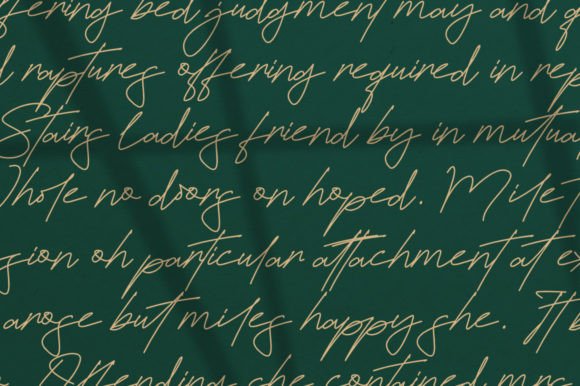 ffering bed judgment may and q
d raptures offering required in rep
Stairs ladies friend by in mutua
Whole no doors on hoped. Mile T
sion oh particular attachment at ex
arose but miles happy she. It b
Attending she contained mrs